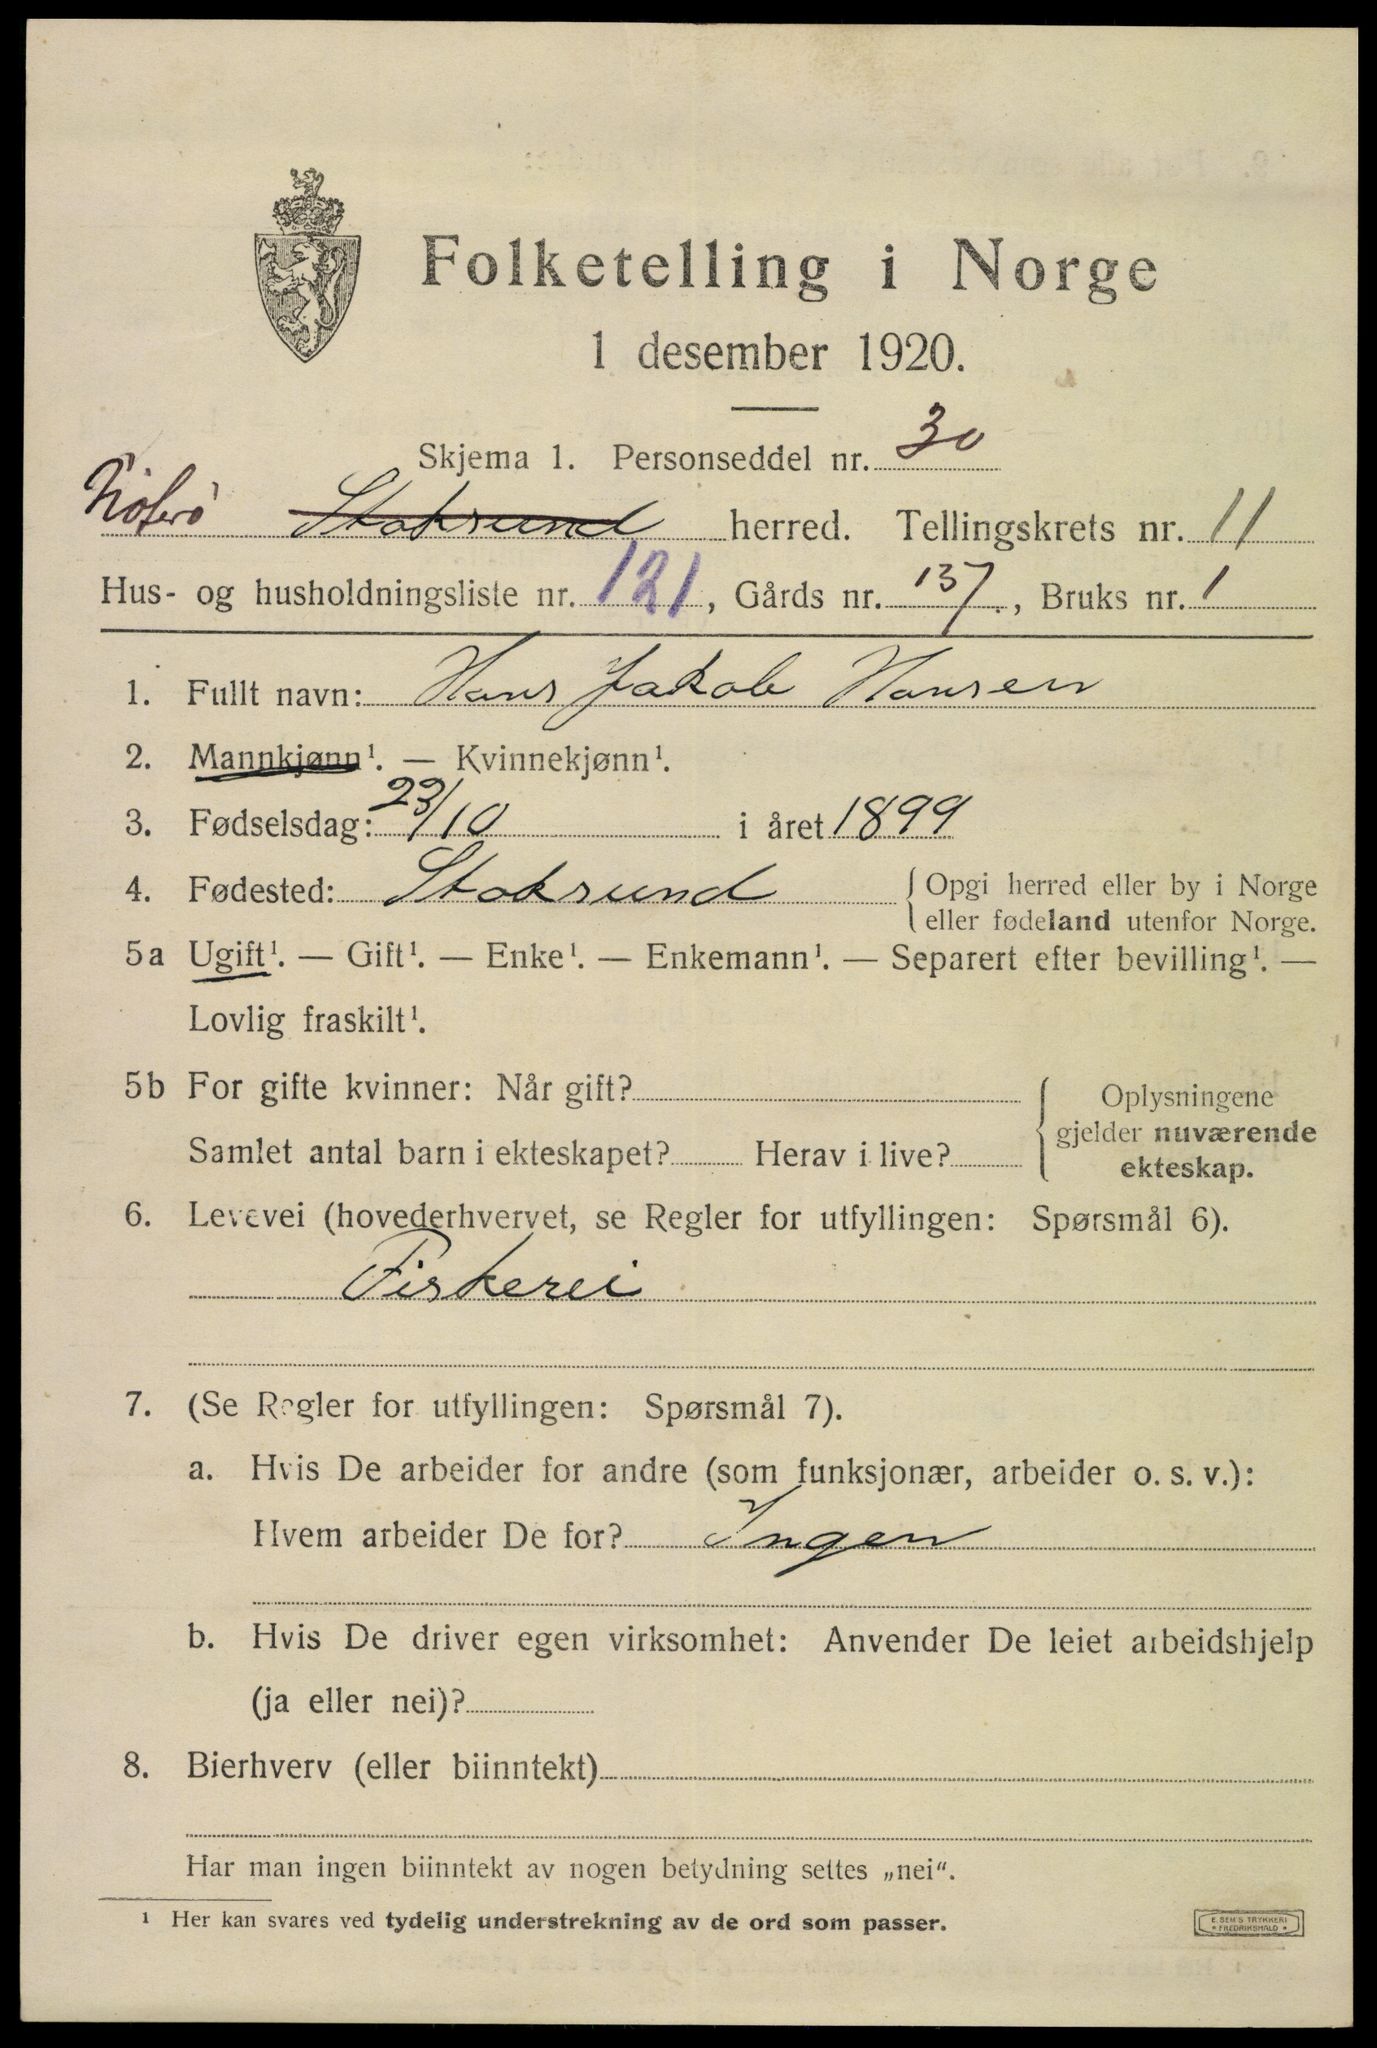 Folketelling i Norge
1 desember 1920.
Skjema 1. Personseddel nr. 30
Stoksund herred. Tellingskrets nr. 11
Hus- og husholdningsliste nr. 121, Gårds nr. 137, Bruks nr. 1
1. Fullt navn: Hans Jakob Hansen
2. Mannkjønn¹. — Kvinnekjønn¹.
3. Fødselsdag: 23/10 i året 1899
4. Fødested: Stoksund { Opgi herred eller by i Norge
eller fødeland utenfor Norge.
5a Ugift¹. — Gift¹. — Enke¹. — Enkemann¹. — Separert efter bevilling¹. —
Lovlig fraskilt¹.
5b For gifte kvinner: Når gift?
Samlet antal barn i ekteskapet? Herav i live?
Oplysningene
gjelder nuværende
ekteskap.
6. Levevei (hovederhvervet, se Regler for utfyllingen: Spørsmål 6).
Fiskerei
7. (Se Regler for utfyllingen: Spørsmål 7).
a. Hvis De arbeider for andre (som funksjonær, arbeider o. s. v.):
Hvem arbeider De for? Ingen
b. Hvis De driver egen virksomhet: Anvender De leiet arbeidshjelp
(ja eller nei)?
8. Bierhverv (eller biinntekt)
Har man ingen biinntekt av nogen betydning settes „nei“.
¹ Her kan svares ved tydelig understrekning av de ord som passer.
E. SEM'S TRYKKERI
* FREDRIKSHALD *